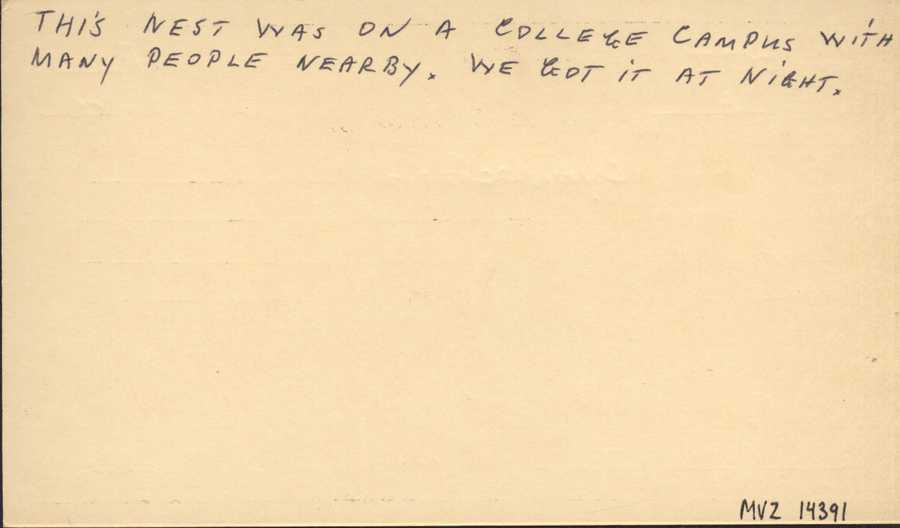 THIS NEST WAS ON A COLLEGE CAMPUS WITH
MANY PEOPLE NEARBY. WE GOT IT AT NIGHT.
MVZ 14391